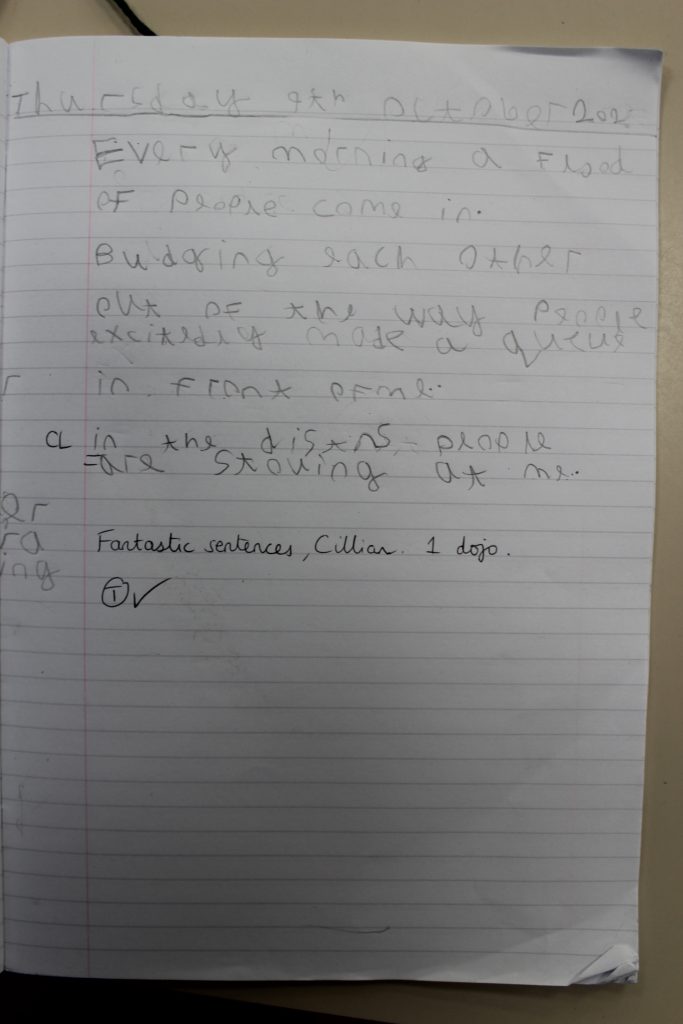 Thursday 9th October 202
Every morning a flood
of people come in.
Budging each other
out of the way people
excitedly made a queue
r in front of me.
CL in the distns people
are stauing at me.
er
ra Fantastic sentences, Cillian. 1 dojo.
ing
T ✓